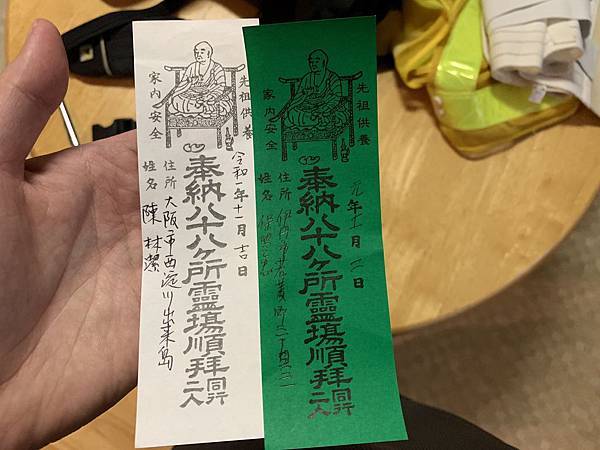 先祖供養
家内安全
令和一年十一月吉日
奉納八十八ヶ所靈塲順拝同行二人
住所 大阪市西淀川出来島
姓名 陳林潔
先祖供養
家内安全
元年十一月二日
奉納八十八ヶ所靈塲順拝同行二人
住所 伊丹市
姓名